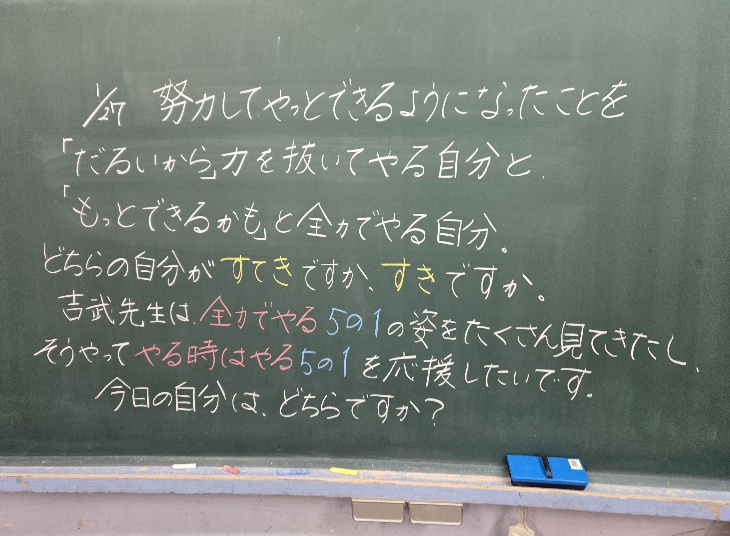 1/27 努力してやっとできるようになったことを
「だるいから」力を抜いてやる自分と、
「もっとできるかも」と全力でやる自分。
どちらの自分がすてきですか、すきですか。
吉武先生は、全力でやる5の1の姿をたくさん見てきたし、
そうやってやる時はやる5の1を応援したいです。
今日の自分は、どちらですか?